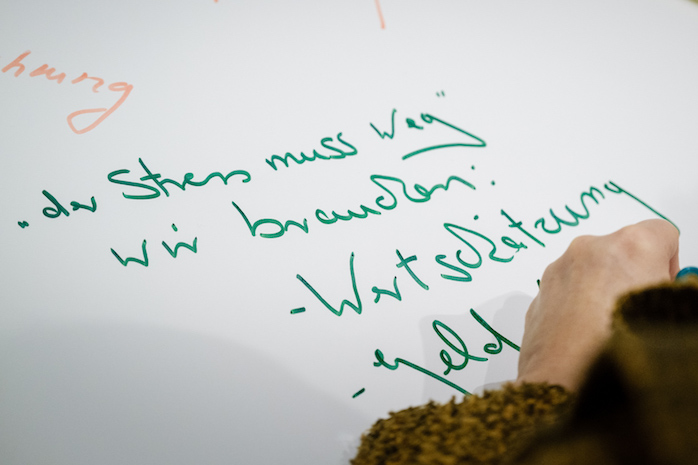 hmung
„der Stress muss weg"
wir brauchen:
- Wertschätzung
-